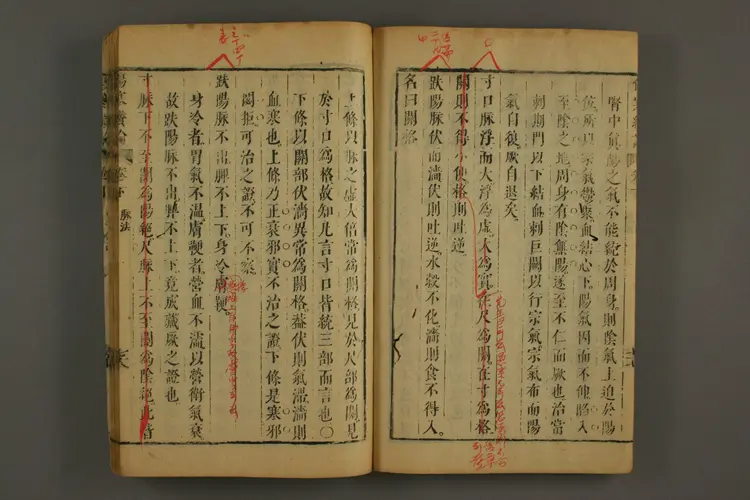 腎中眞陽之氣不能統於周身則陰氣上迫於陽
位所以宗氣鬱聚血結心下陽氣因而不伸將入
至陰之地周身有陰無陽遂至不仁而厥也治當
刺期門以下結血刺巨闕以行宗氣宗氣布而陽
氣自復厥自退矣
寸口脉浮而大浮爲虛大爲實在尺爲關在寸爲格
關則不得小便格則吐逆
趺陽脉伏而濇伏則吐逆水穀不化濇則食不得入
名曰關格
上條以脉之虛大倍常爲關格見於尺部爲關見
於寸口爲格故知凡言寸口皆統三部而言也〇
下條以關部伏濇異常爲關格蓋伏則氣濇則
血寒也上條乃正衰邪實不治之證下條是寒邪
關拒可治之證不可不察
趺陽脉不出脾不上下身冷膚鞕
身冷者胃氣不溫膚鞕者營血不濡以營衛氣衰
故趺陽脉不出脾不上下竟成藏厥之證也
寸脉下不至關爲陽絶尺脉上不至關爲陰絶此皆
脉法